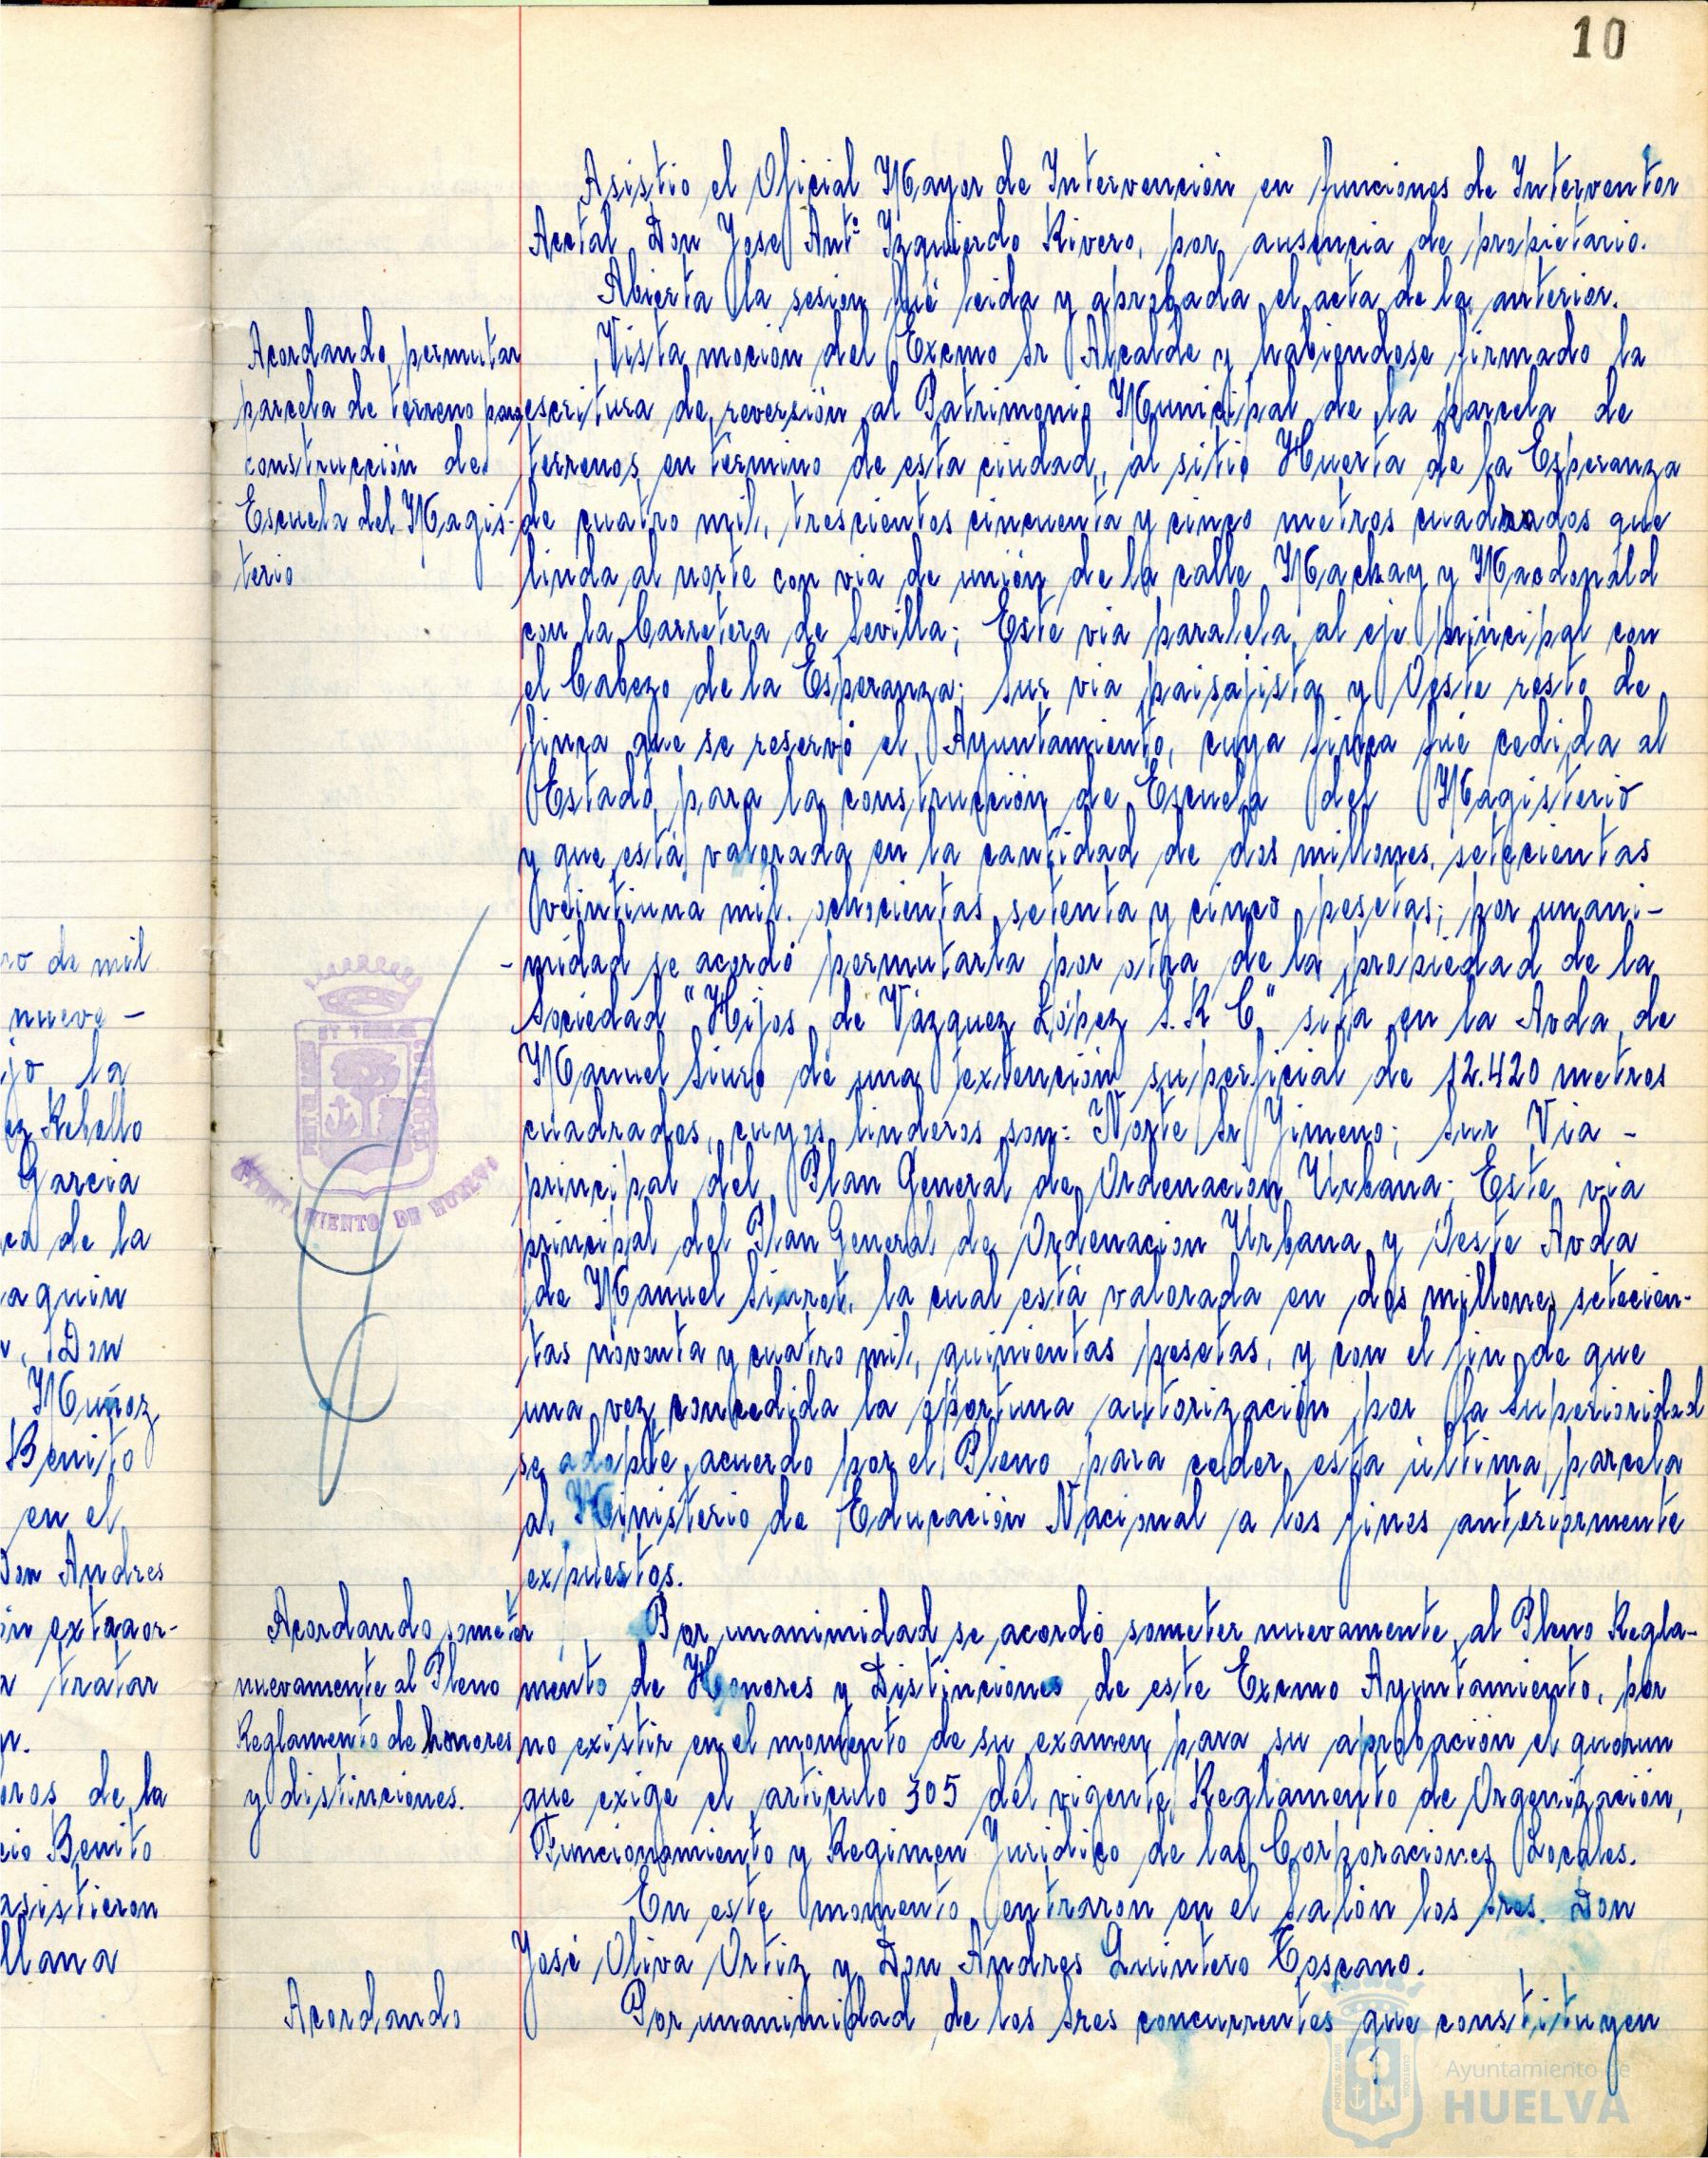 10
Asistio el Oficial Mayor de Intervención en funciones de Interventor
Acctal Don Jose Antº Izquierdo Rivero, por ausencia de propietario.
Abierta la sesion fué leida y aprobada el acta de la anterior.
Acordando permutar
parcela de terreno para
construcción de
Escuela del Magis-
terio
Vista moción del Excmo Sr Alcalde y habiendose firmado la
escritura de reversión al Patrimonio Municipal de la parcela de
terrenos en término de esta ciudad, al sitio Huerta de la Esperanza
de cuatro mil, trescientos cincuenta y cinco metros cuadrados que
linda al norte con via de unión de la calle Mackay y Macdonald
con la Carretera de Sevilla; Este via paralela al eje principal con
el Cabezo de la Esperanza; Sur via paisajista y Oeste resto de
finca que se reservó el Ayuntamiento, cuya finca fué cedida al
Estado para la construcción de Escuela del Magisterio
y que está valorada en la cantidad de dos millones, setecientas
veintiuna mil. ochocientas setenta y cinco pesetas; por unani-
-midad se acordó permutarla por otra de la propiedad de la
Sociedad "Hijos de Vázquez López S.R C" sita en la Avda de
Manuel Siuro de una extención superficial de 12.420 metros
cuadrados, cuyos linderos son: Norte Sr Jimeno; Sur Via -
principal del Plan General de Ordenación Urbana; Este via
principal del Plan General de Ordenación Urbana y Oeste Avda
de Manuel Siurot, la cual está valorada en dos millones setecien-
tas noventa y cuatro mil, quinientas pesetas, y con el fin de que
una vez concedida la oportuna autorización por la Superioridad
se adopte acuerdo por el Pleno para ceder esta última parcela
al Ministerio de Educación Nacional a los fines anteriormente
expuestos.
Acordando someter
nuevamente al Pleno
Reglamento de honores
y distinciones.
Por unanimidad se acordó someter nuevamente al Pleno Regla-
mento de Honores y Distinciones de este Excmo Ayuntamiento, por
no existir en el momento de su exámen para su aprobación el quorun
que exige el articulo 305 del vigente Reglamento de Organización,
Funcionamiento y Regimen Juridico de las Corporaciones Locales.
En este momento entraron en el salón los Sres. Don
José Oliva Ortiz y Don Andres Quintero Toscano.
Acordando
Por unanimidad de los Sres concurrentes que constituyen
ro de mil
nueve -
jo la
ez Rebollo
Garcia
ca de la
aquin
Don
Muñoz
Benito
en el
Don Andres
ón extraor-
a tratar
n.
oros de la
cio Benito
asistieron
llana
AYUNTAMIENTO DE HUELVA
Ayuntamiento de
HUELVA